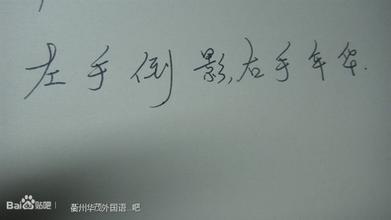 左手倒影,右手年华.
Bai百度贴吧 衢州华茂外国语...吧